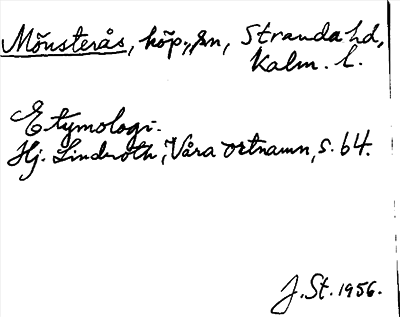 Mönsterås, köp., sn, Stranda hd,
Kalm. l.
Etymologi.
Hj. Lindroth, Våra ortnamn, s. 64.
J. St. 1956.